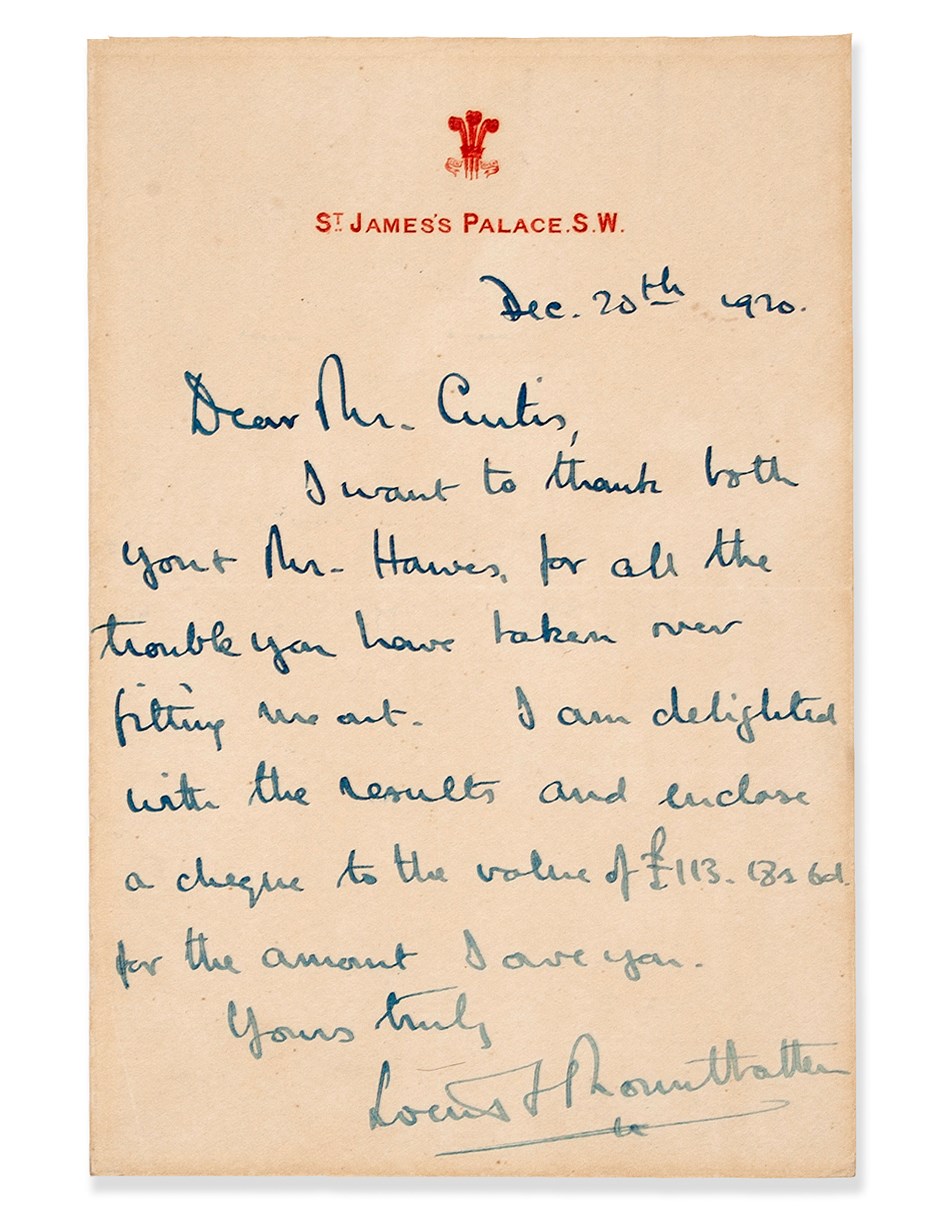 ST JAMES'S PALACE. S.W.
Dec. 20th 1920.
Dear Mr. Curtis,
I want to thank both
you + Mr. Hawes, for all the
trouble you have taken over
fitting me out. I am delighted
with the results and enclose
a cheque to the value of £113. 18s 6d.
for the amount I owe you.
Yours truly
Louis F Mountbatten